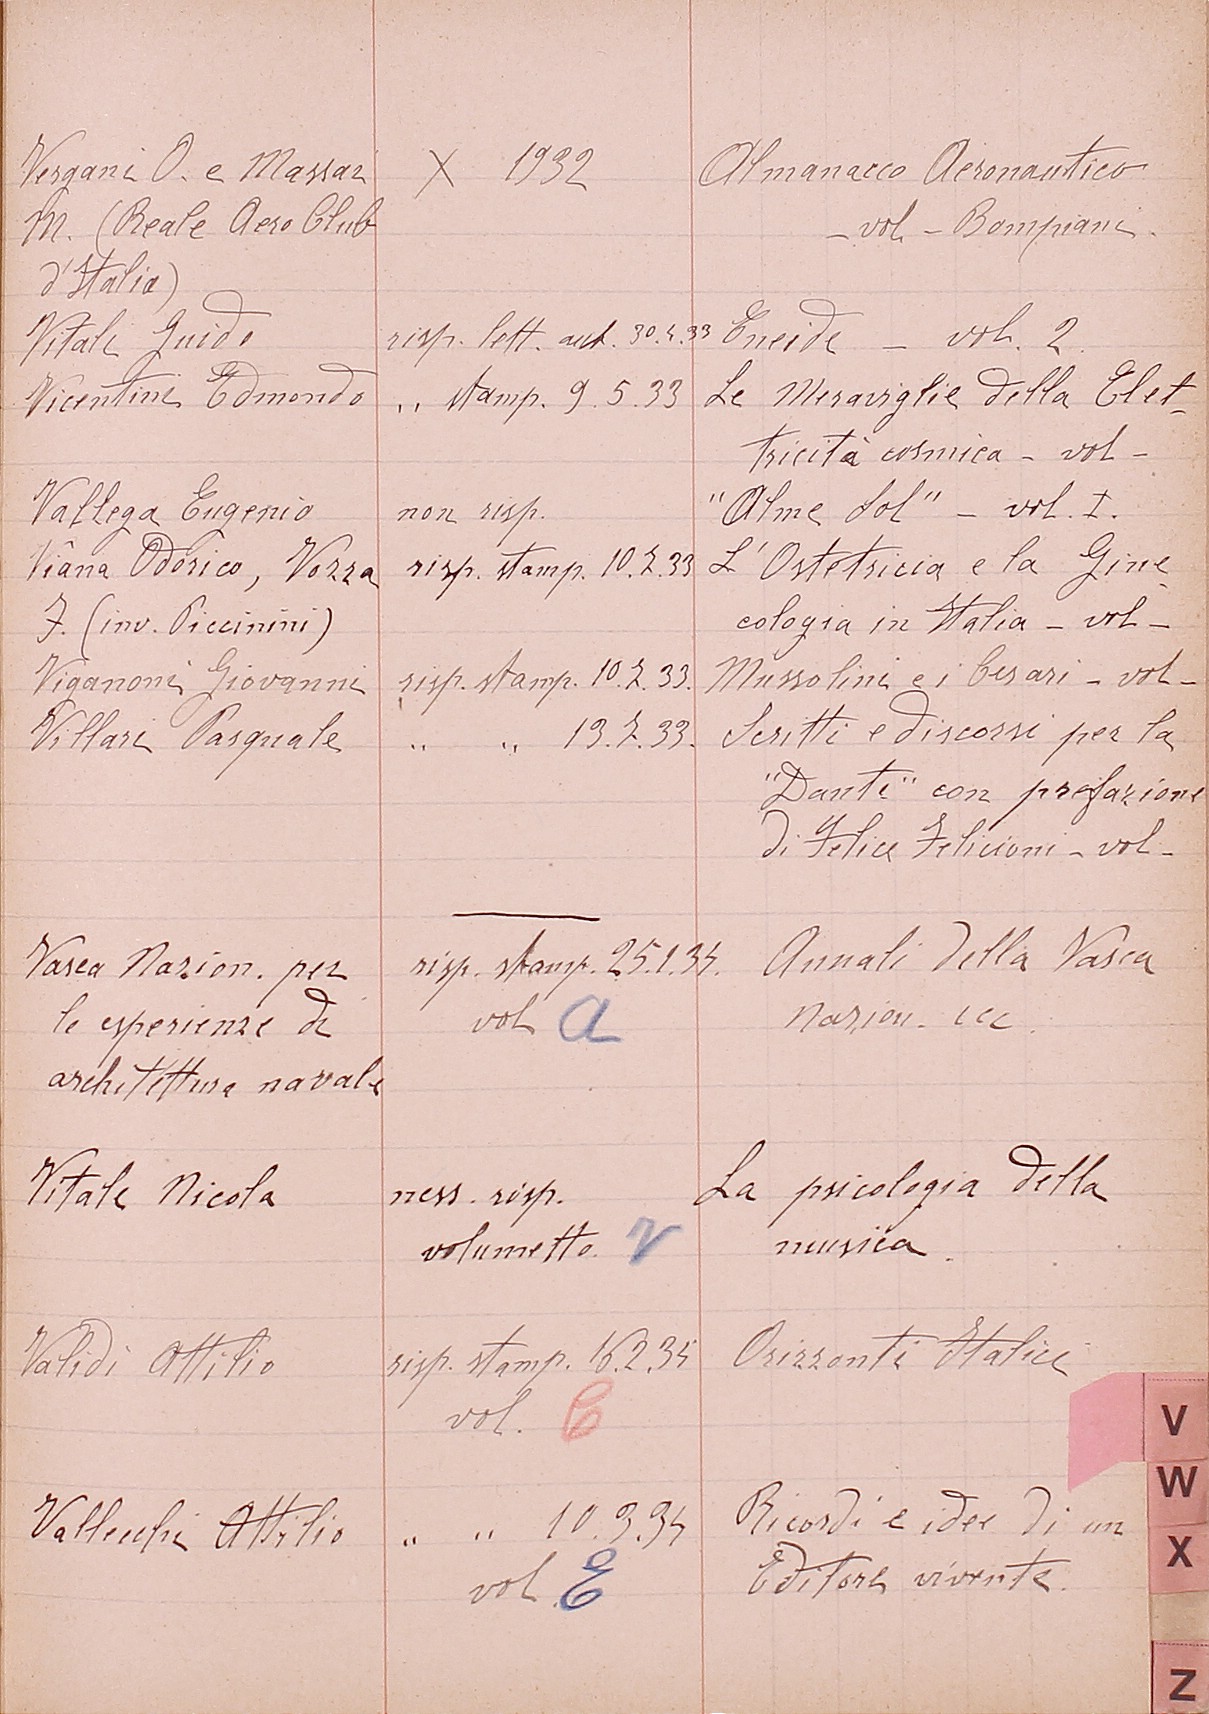 Vergani O. e Massai X 1932 Almanacco Aeronautico
M. (Reale Aero Club - vol - Bompiani.
d'Italia)
Vitali Guido risp. lett. aut. 30.4.33 Eneide - vol. 2.
Vicentini Edmondo ,, stamp. 9.5.33 Le Meraviglie della Elet-
tricità cosmica - vol -
Vallega Eugenio non risp. "Alme Sol" - vol. I.
Viana Odorico, Vozza risp. stamp. 10.7.33 L'Ostetricia e la Gine-
F. (inv. Piccinini) cologia in Italia - vol -
Viganoni Giovanni risp. stamp. 10.7.33. Mussolini e i Cesari - vol -
Villari Pasquale ,, ,, 13.7.33. Scritti e discorsi per la
"Dante" con prefazione
di Felice Felicioni - vol -
Vasca Nazion. per risp. stamp. 25.1.34. Annali della Vasca
le esperienze di vol A Nazion. ecc.
architettura navale
Vitale Nicola ness. risp. La psicologia della
volumetto. V musica.
Validi Attilio risp. stamp. 16.2.34 Orizzonti Italici
vol. C
Vallecchi Attilio ,, ,, 10.3.34 Ricordi e idee di un
vol. E Editore vivente.
V
W
X
Z